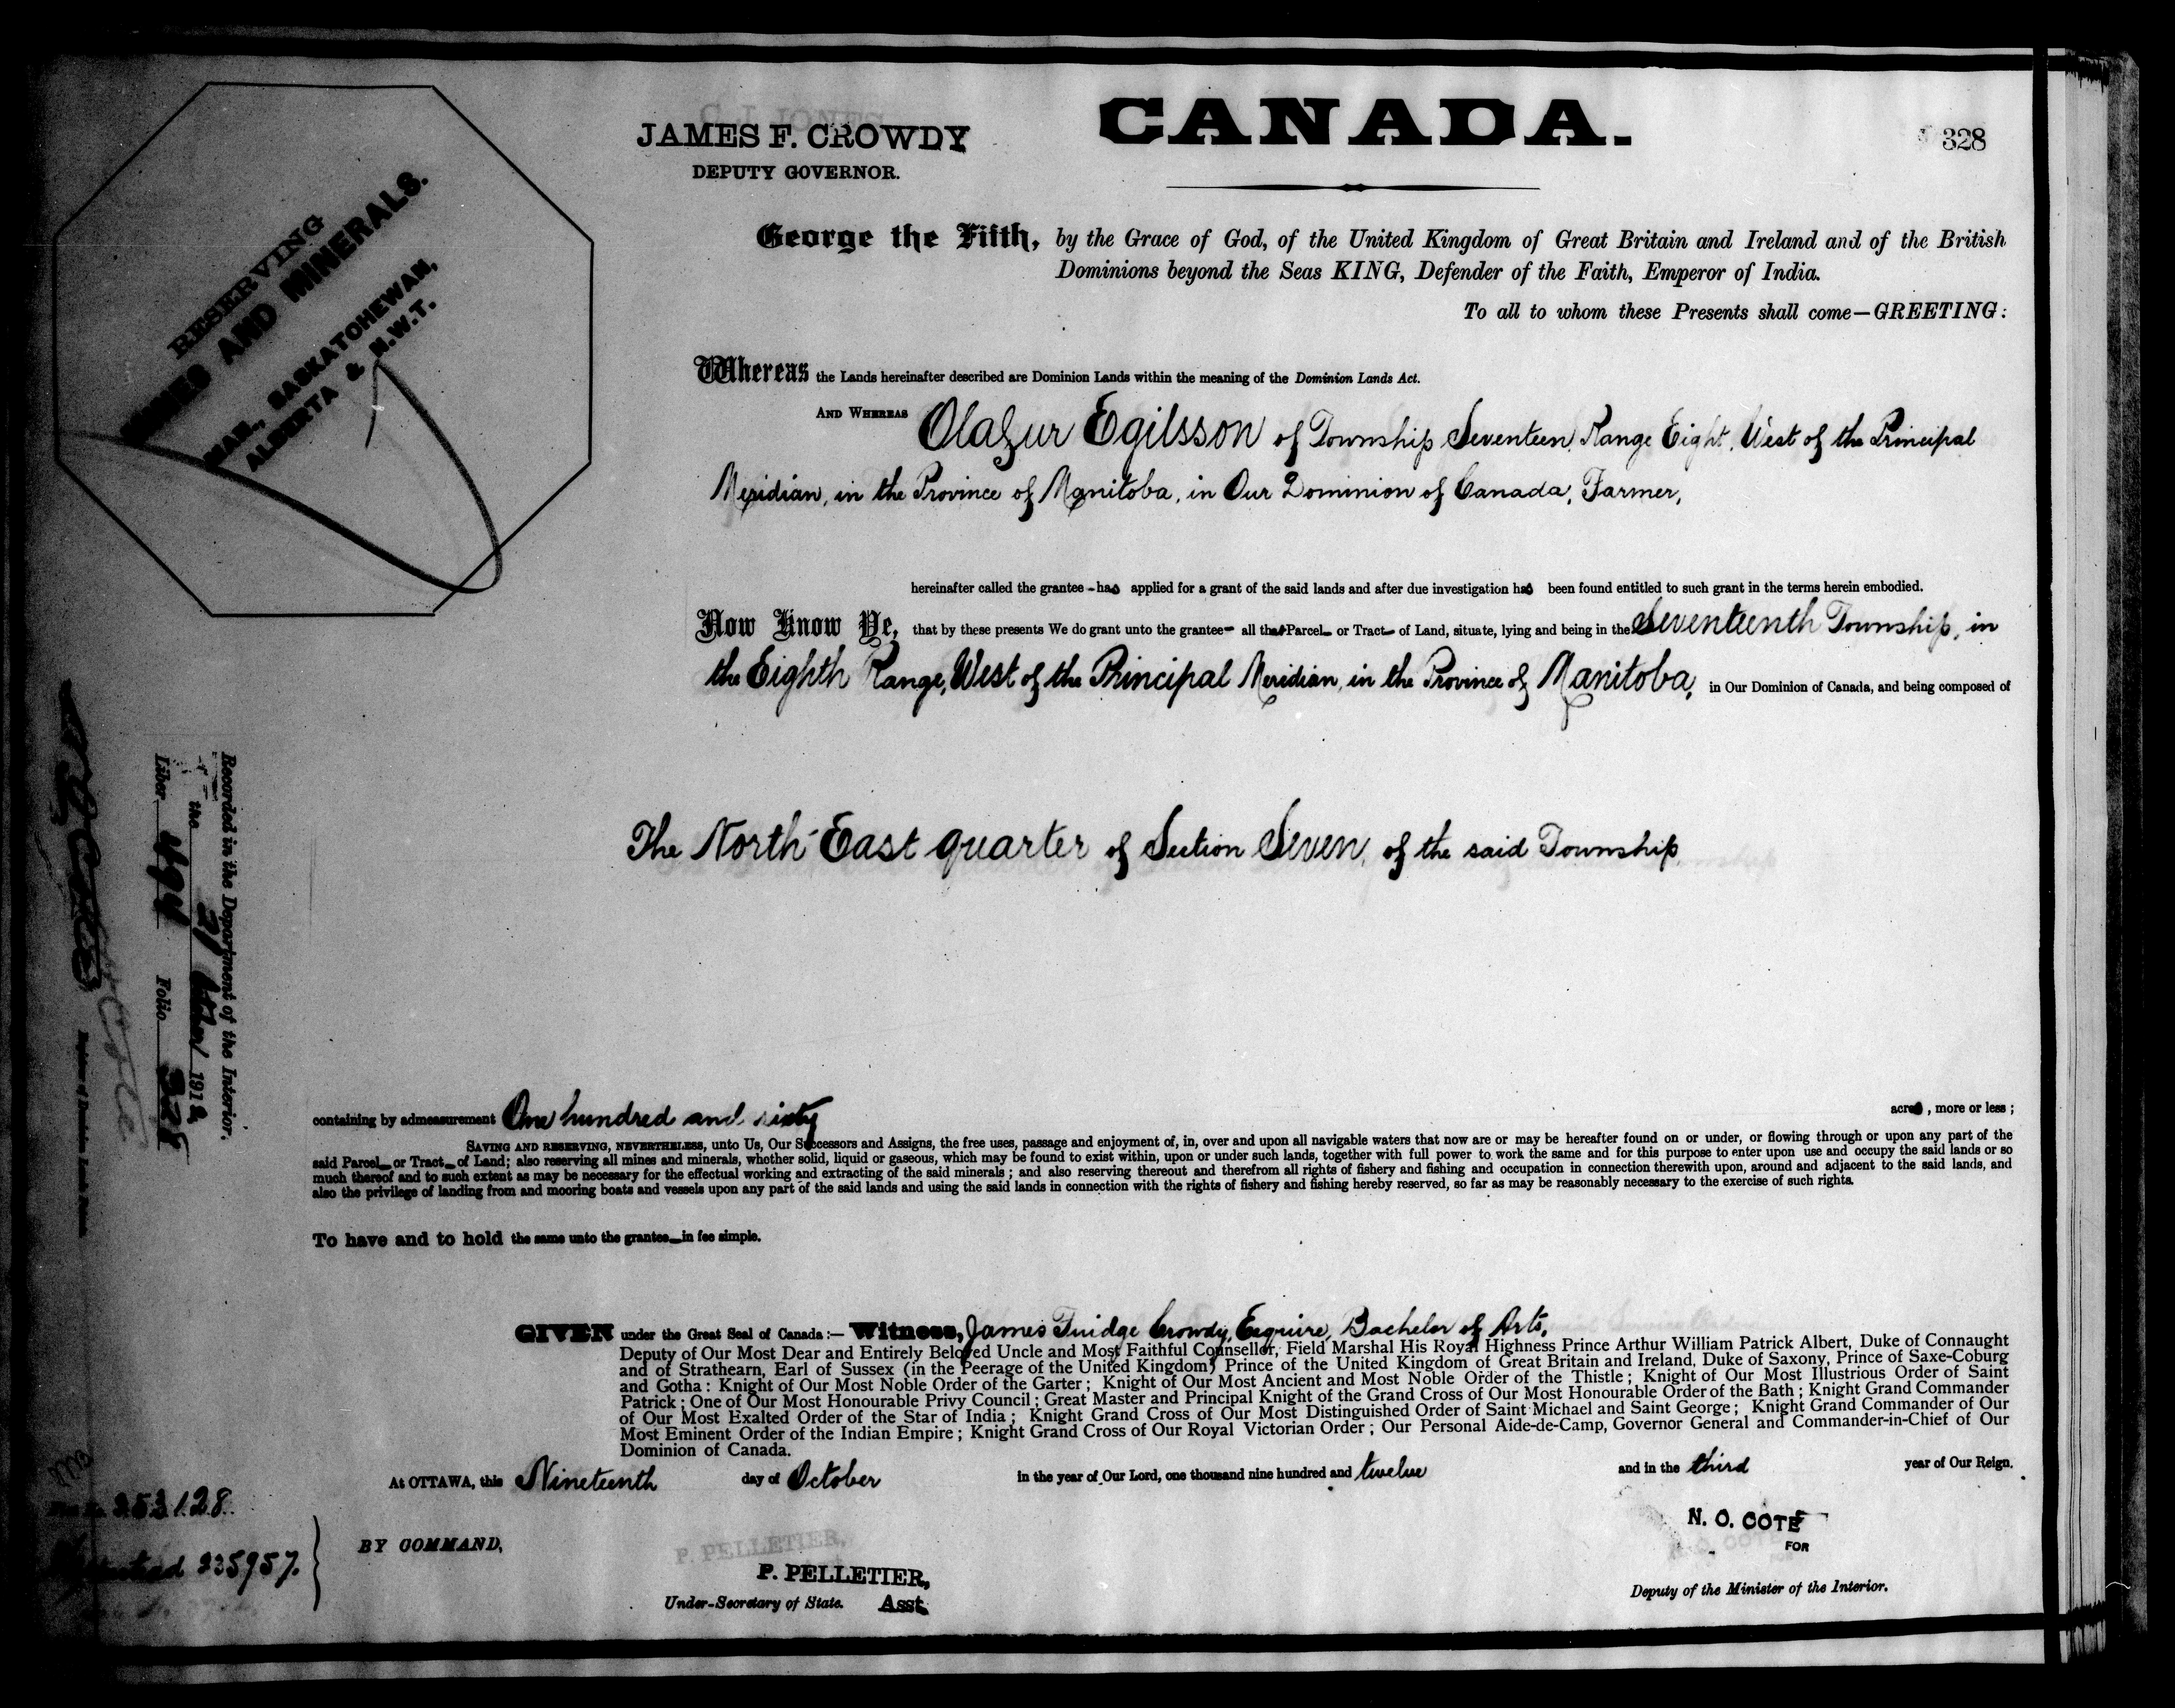 JAMES F. CROWDY
DEPUTY GOVERNOR.
CANADA.
328
RESERVING
MINES AND MINERALS.
MAN., SASKATCHEWAN,
ALBERTA & N.W.T.
George the Fifth, by the Grace of God, of the United Kingdom of Great Britain and Ireland and of the British
Dominions beyond the Seas KING, Defender of the Faith, Emperor of India.
To all to whom these Presents shall come—GREETING:
Whereas the Lands hereinafter described are Dominion Lands within the meaning of the Dominion Lands Act.
AND WHEREAS Olafur Egilsson of Township Seventeen, Range Eight, West of the Principal
Meridian, in the Province of Manitoba, in Our Dominion of Canada, Farmer,
hereinafter called the grantee - has applied for a grant of the said lands and after due investigation has been found entitled to such grant in the terms herein embodied.
Now Know Ye, that by these presents We do grant unto the grantee- all that Parcel- or Tract- of Land, situate, lying and being in the Seventeenth Township, in
the Eighth Range, West of the Principal Meridian, in the Province of Manitoba, in Our Dominion of Canada, and being composed of
The North East quarter of Section Seven, of the said Township
Recorded in the Department of the Interior.
the 21 1912
Liber 494 Folio 328
containing by admeasurement One hundred and sixty acres, more or less;
SAVING AND RESERVING, NEVERTHELESS, unto Us, Our Successors and Assigns, the free uses, passage and enjoyment of, in, over and upon all navigable waters that now are or may be hereafter found on or under, or flowing through or upon any part of the
said Parcel- or Tract- of Land; also reserving all mines and minerals, whether solid, liquid or gaseous, which may be found to exist within, upon or under such lands, together with full power to work the same and for this purpose to enter upon use and occupy the said lands or so
much thereof and to such extent as may be necessary for the effectual working and extracting of the said minerals; and also reserving thereout and therefrom all rights of fishery and fishing and occupation in connection therewith upon, around and adjacent to the said lands, and
also the privilege of landing from and mooring boats and vessels upon any part of the said lands and using the said lands in connection with the rights of fishery and fishing hereby reserved, so far as may be reasonably necessary to the exercise of such rights.
To have and to hold the same unto the grantee- in fee simple.
GIVEN under the Great Seal of Canada:— Witness, James Fuidge Crowdy, Esquire, Bachelor of Arts,
Deputy of Our Most Dear and Entirely Beloved Uncle and Most Faithful Counsellor, Field Marshal His Royal Highness Prince Arthur William Patrick Albert, Duke of Connaught
and of Strathearn, Earl of Sussex (in the Peerage of the United Kingdom) Prince of the United Kingdom of Great Britain and Ireland, Duke of Saxony, Prince of Saxe-Coburg
and Gotha: Knight of Our Most Noble Order of the Garter; Knight of Our Most Ancient and Most Noble Order of the Thistle; Knight of Our Most Illustrious Order of Saint
Patrick; One of Our Most Honourable Privy Council; Great Master and Principal Knight of the Grand Cross of Our Most Honourable Order of the Bath; Knight Grand Commander
of Our Most Exalted Order of the Star of India; Knight Grand Cross of Our Most Distinguished Order of Saint Michael and Saint George; Knight Grand Commander of Our
Most Eminent Order of the Indian Empire; Knight Grand Cross of Our Royal Victorian Order; Our Personal Aide-de-Camp, Governor General and Commander-in-Chief of Our
Dominion of Canada.
At OTTAWA, this Nineteenth day of October in the year of Our Lord, one thousand nine hundred and twelve and in the third year of Our Reign.
253128.
235957.
BY COMMAND,
P. PELLETIER,
Under-Secretary of State. Asst.
N. O. COTE
FOR
Deputy of the Minister of the Interior.